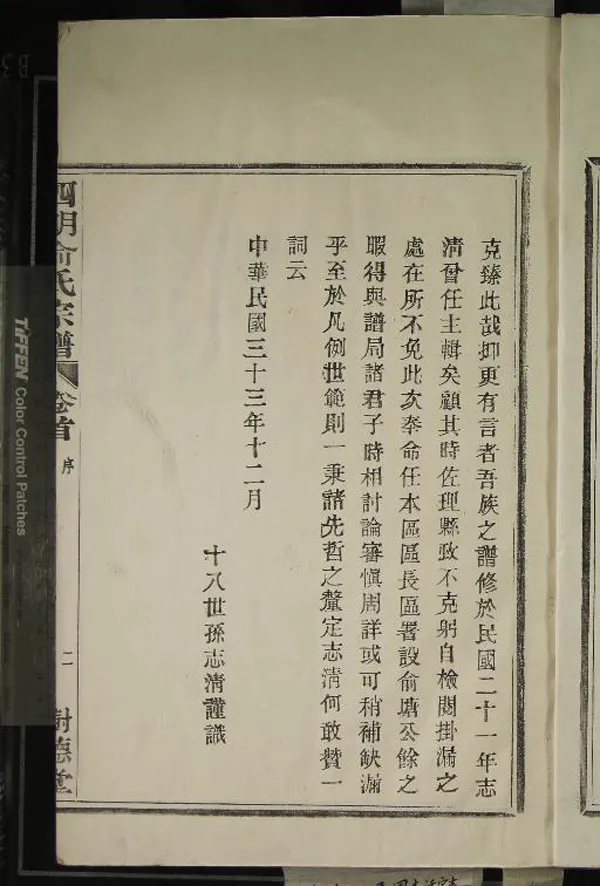 克臻此哉抑更有言者吾族之譜修於民國二十一年志
清曾任主輯矣顧其時佐理縣政不克躬自檢閱掛漏之
處在所不免此次奉命任本區區長區署設俞塘公餘之
暇得與譜局諸君子時相討論審慎周詳或可稍補缺漏
乎至於凡例世範則一秉諸先哲之釐定志清何敢贊一
詞云
中華民國三十三年十二月
十八世孫志清謹識
四明俞氏宗譜 卷首 序 二 樹德堂
TIFFEN Color Control Patches